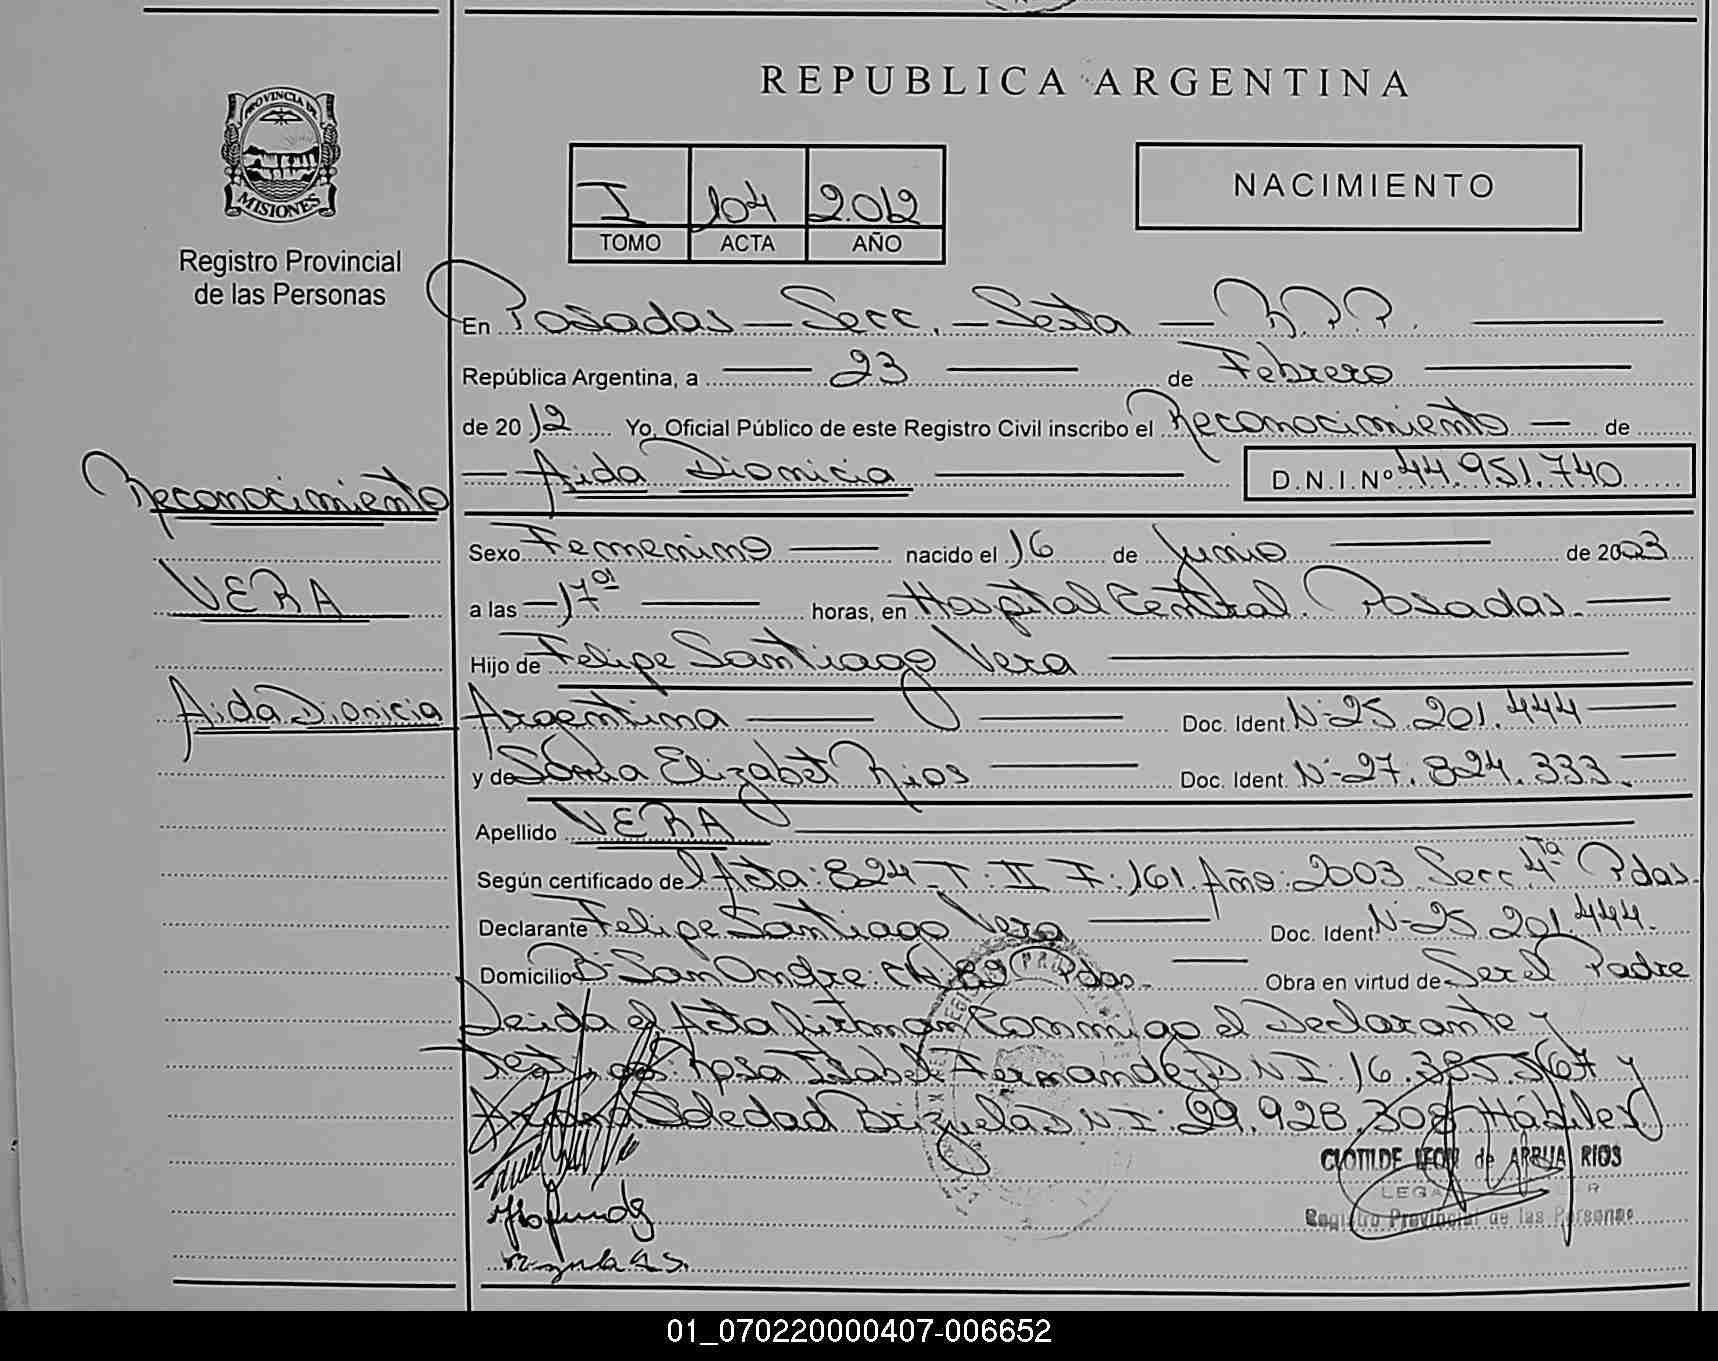 REPUBLICA ARGENTINA
PROVINCIA DE
MISIONES
Registro Provincial
de las Personas
I 104 2012
TOMO ACTA AÑO
NACIMIENTO
En Posadas - Secc. - Sexta - R.P.P.
República Argentina, a 23 de Febrero
de 2012 Yo, Oficial Público de este Registro Civil inscribo el Reconocimiento de
Aida Dionicia D.N.I.Nº 44.951.740
Reconocimiento
VERA
Aida Dionicia
Sexo Femenino nacido el 16 de Junio de 2003
a las 17 horas, en Hospital Central. Posadas.
Hijo de Felipe Santiago Vera
Argentina Doc. Ident. Nº 25.201.444
y de Sonia Elizabet Rios Doc. Ident. Nº 27.824.333.
Apellido VERA
Según certificado del Acta: 824 T: II F: 161. Año: 2003 Secc 4ta Pdas.
Declarante Felipe Santiago Vera Doc. Ident. Nº 25.201.444.
Domicilio Bº San Onofre: CH: 89 Pdas. Obra en virtud de Ser el Padre
Leida el Acta firman Conmigo el Declarante y
Testigos: Rosa Isabel Fernandez DNI: 16.385.567 y
Soledad Brizuela DNI: 29.928.308 Hábiles
CLOTILDE de ARRUA RIOS
Registro Provincial de las Personas
01_070220000407-006652